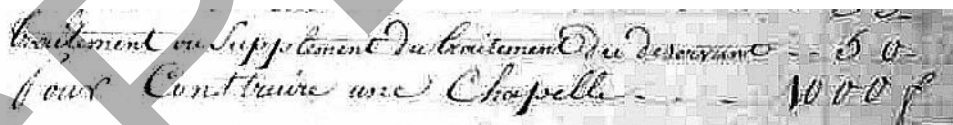 traitement ou Supplement du traitement du desservant - - 50
pour Construire une Chapelle - - - 1000 f